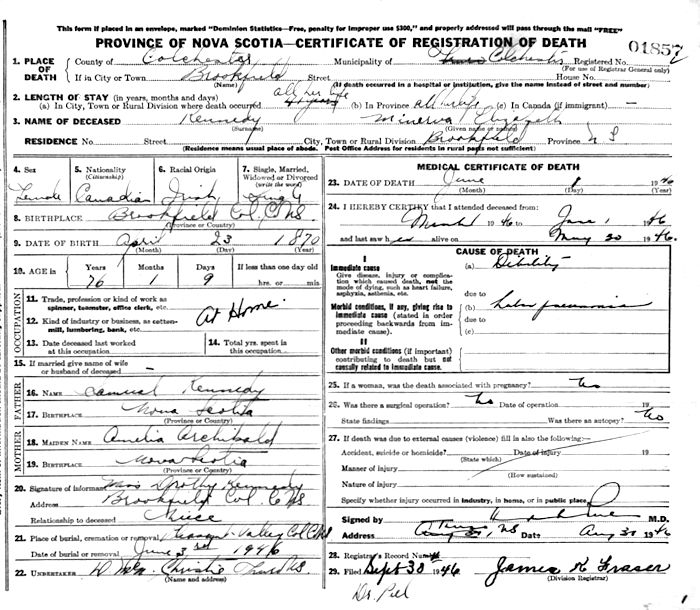 This form if placed in an envelope, marked "Dominion Statistics—Free, penalty for improper use $300," and properly addressed will pass through the mail "FREE"
PROVINCE OF NOVA SCOTIA—CERTIFICATE OF REGISTRATION OF DEATH
01857
1. PLACE OF DEATH { County of Colchester Municipality of Colchester Registered No.
(For use of Registrar General only)
If in City or Town Brookfield Street House No.
(Name) (If death occurred in a hospital or institution, give the name instead of street and number)
2. LENGTH OF STAY (in years, months and days) all her life
(a) In City, Town or Rural Division where death occurred (b) In Province all her life (c) In Canada (if immigrant) —
3. NAME OF DECEASED Kennedy Minerva Elizabeth
(Surname) (Given name or names)
RESIDENCE No. Street City, Town or Rural Division Brookfield Province N S
(Residence means usual place of abode. Post Office Address for residents in rural parts not sufficient)
4. Sex Female
5. Nationality (Citizenship) Canadian
6. Racial Origin Irish
7. Single, Married, Widowed or Divorced (write the word) Single
8. BIRTHPLACE Brookfield Col. Co NS
(Province or Country)
9. DATE OF BIRTH April 23 1870
(Month) (Day) (Year)
10. AGE in Years Months Days If less than one day old
76 1 9 hrs. or min.
OCCUPATION
11. Trade, profession or kind of work as spinner, teamster, office clerk, etc.
At Home.
12. Kind of industry or business, as cotton-mill, lumbering, bank, etc.
13. Date deceased last worked at this occupation
14. Total yrs. spent in this occupation
15. If married give name of wife or husband of deceased —
FATHER
16. NAME Samuel Kennedy
17. BIRTHPLACE Nova Scotia
(Province or Country)
MOTHER
18. MAIDEN NAME Amelia Archibald
19. BIRTHPLACE Nova Scotia
(Province or Country)
20. Signature of informant Miss Dorothy Kennedy
Address Brookfield Col. Co NS
Relationship to deceased Niece
21. Place of burial, cremation or removal Pleasant Valley Col Co NS
Date of burial or removal June 3rd 1946
22. UNDERTAKER Christie Truro NS
(Name and address)
MEDICAL CERTIFICATE OF DEATH
23. DATE OF DEATH June 1 1946
(Month) (Day) (Year)
24. I HEREBY CERTIFY that I attended deceased from:
March 1946 to June 1 1946
and last saw her alive on May 30 1946.
CAUSE OF DEATH
I
Immediate cause (a) Debility
Give disease, injury or complication which caused death, not the mode of dying, such as heart failure, asphyxia, asthenia, etc.
due to
Morbid conditions, if any, giving rise to immediate cause (stated in order proceeding backwards from immediate cause). (b) Lobar pneumonia
due to
(c)
II
Other morbid conditions (if important) contributing to death but not causally related to immediate cause.
25. If a woman, was the death associated with pregnancy? No
26. Was there a surgical operation? No Date of operation 19
State findings Was there an autopsy? No
27. If death was due to external causes (violence) fill in also the following:—
Accident, suicide or homicide? Date of injury 19
(State which)
Manner of injury
(How sustained)
Nature of injury
Specify whether injury occurred in industry, in home, or in public place
Signed by M.D.
Address NS Date Aug 31 1946
28. Registrar's Record No.
29. Filed Sept 30th 1946 James K Fraser
(Division Registrar)